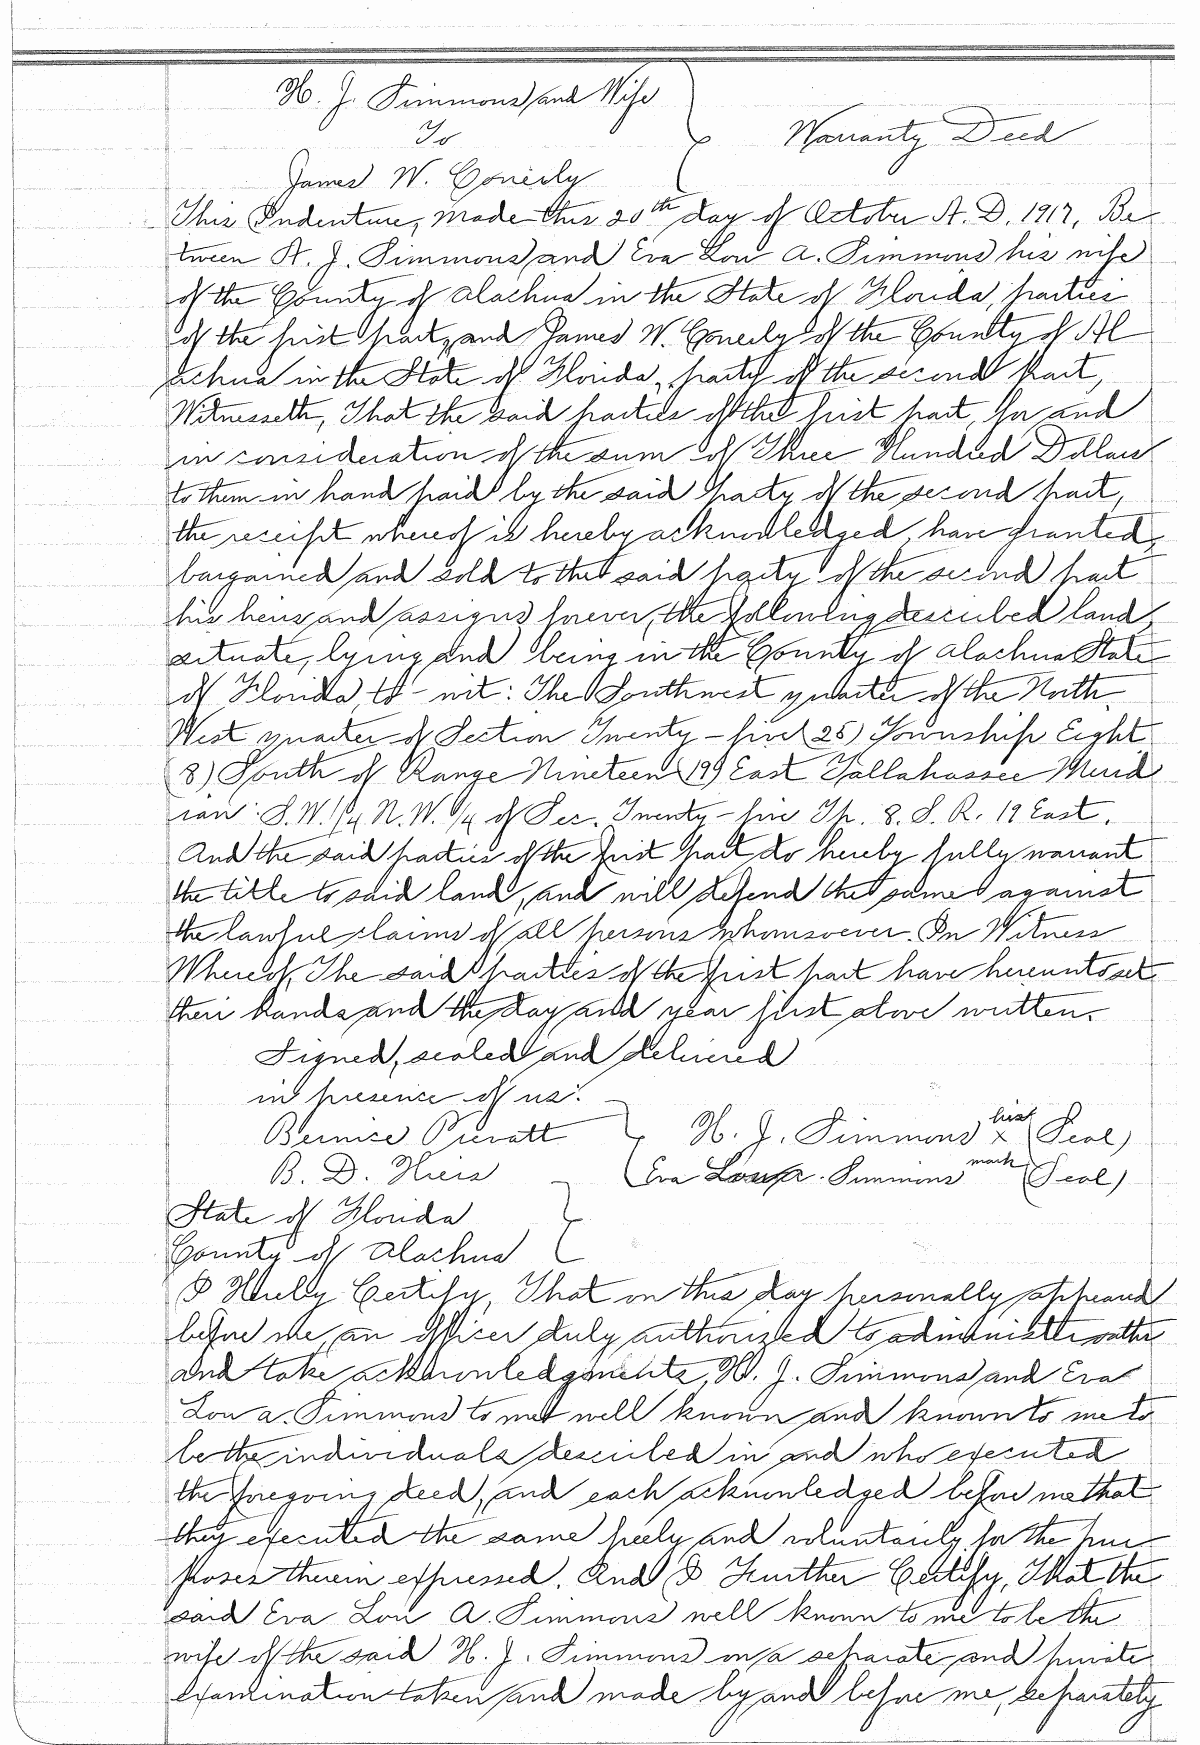 H. J. Simmons and Wife
To
Warranty Deed
James W. Conerly
This Indenture, Made this 20th day of October A. D. 1917, Be-
tween H. J. Simmons and Eva Lou A. Simmons his wife
of the County of Alachua in the State of Florida, parties
of the first part, and James W. Conerly of the County of Al
achua in the State of Florida, party of the second Part,
Witnesseth, That the said parties of the first part, for and
in consideration of the sum of Three Hundred Dollars
to them in hand paid by the said party of the second part,
the receipt whereof is hereby acknowledged, have granted,
bargained and sold to the said party of the second part
his heirs and assigns forever, the following described land,
situate, lying and being in the County of Alachua State
of Florida, to-wit: The Southwest quarter of the North-
West quarter of Section Twenty-five (25) Township Eight
(8) South of Range Nineteen (19) East Tallahassee Merid
ian: S.W. 1/4 N.W. 1/4 of Sec. Twenty-five Tp. 8. S. R. 19 East.
And the said parties of the first part do hereby fully warrant
the title to said land, and will defend the same against
the lawful claims of all persons whomsoever. In Witness
Whereof, The said parties of the first part have hereunto set
their hands and the day and year first above written.
Signed, sealed and delivered
in presence of us:
Bernice Prevatt H. J. Simmons his x (Seal)
B. D. Hiers Eva Lou A. Simmons mark (Seal)
State of Florida
County of Alachua
I Hereby Certify, That on this day personally appeared
before me, an officer duly authorized to administer oaths
and take acknowledgments, H. J. Simmons and Eva
Lou A. Simmons to me well known and known to me to
be the individuals described in and who executed
the foregoing deed, and each acknowledged before me that
they executed the same freely and voluntarily for the pur-
poses therein expressed. And I Further Certify, That the
said Eva Lou A. Simmons well known to me to be the
wife of the said H. J. Simmons on a separate and private
examination taken and made by and before me, separately